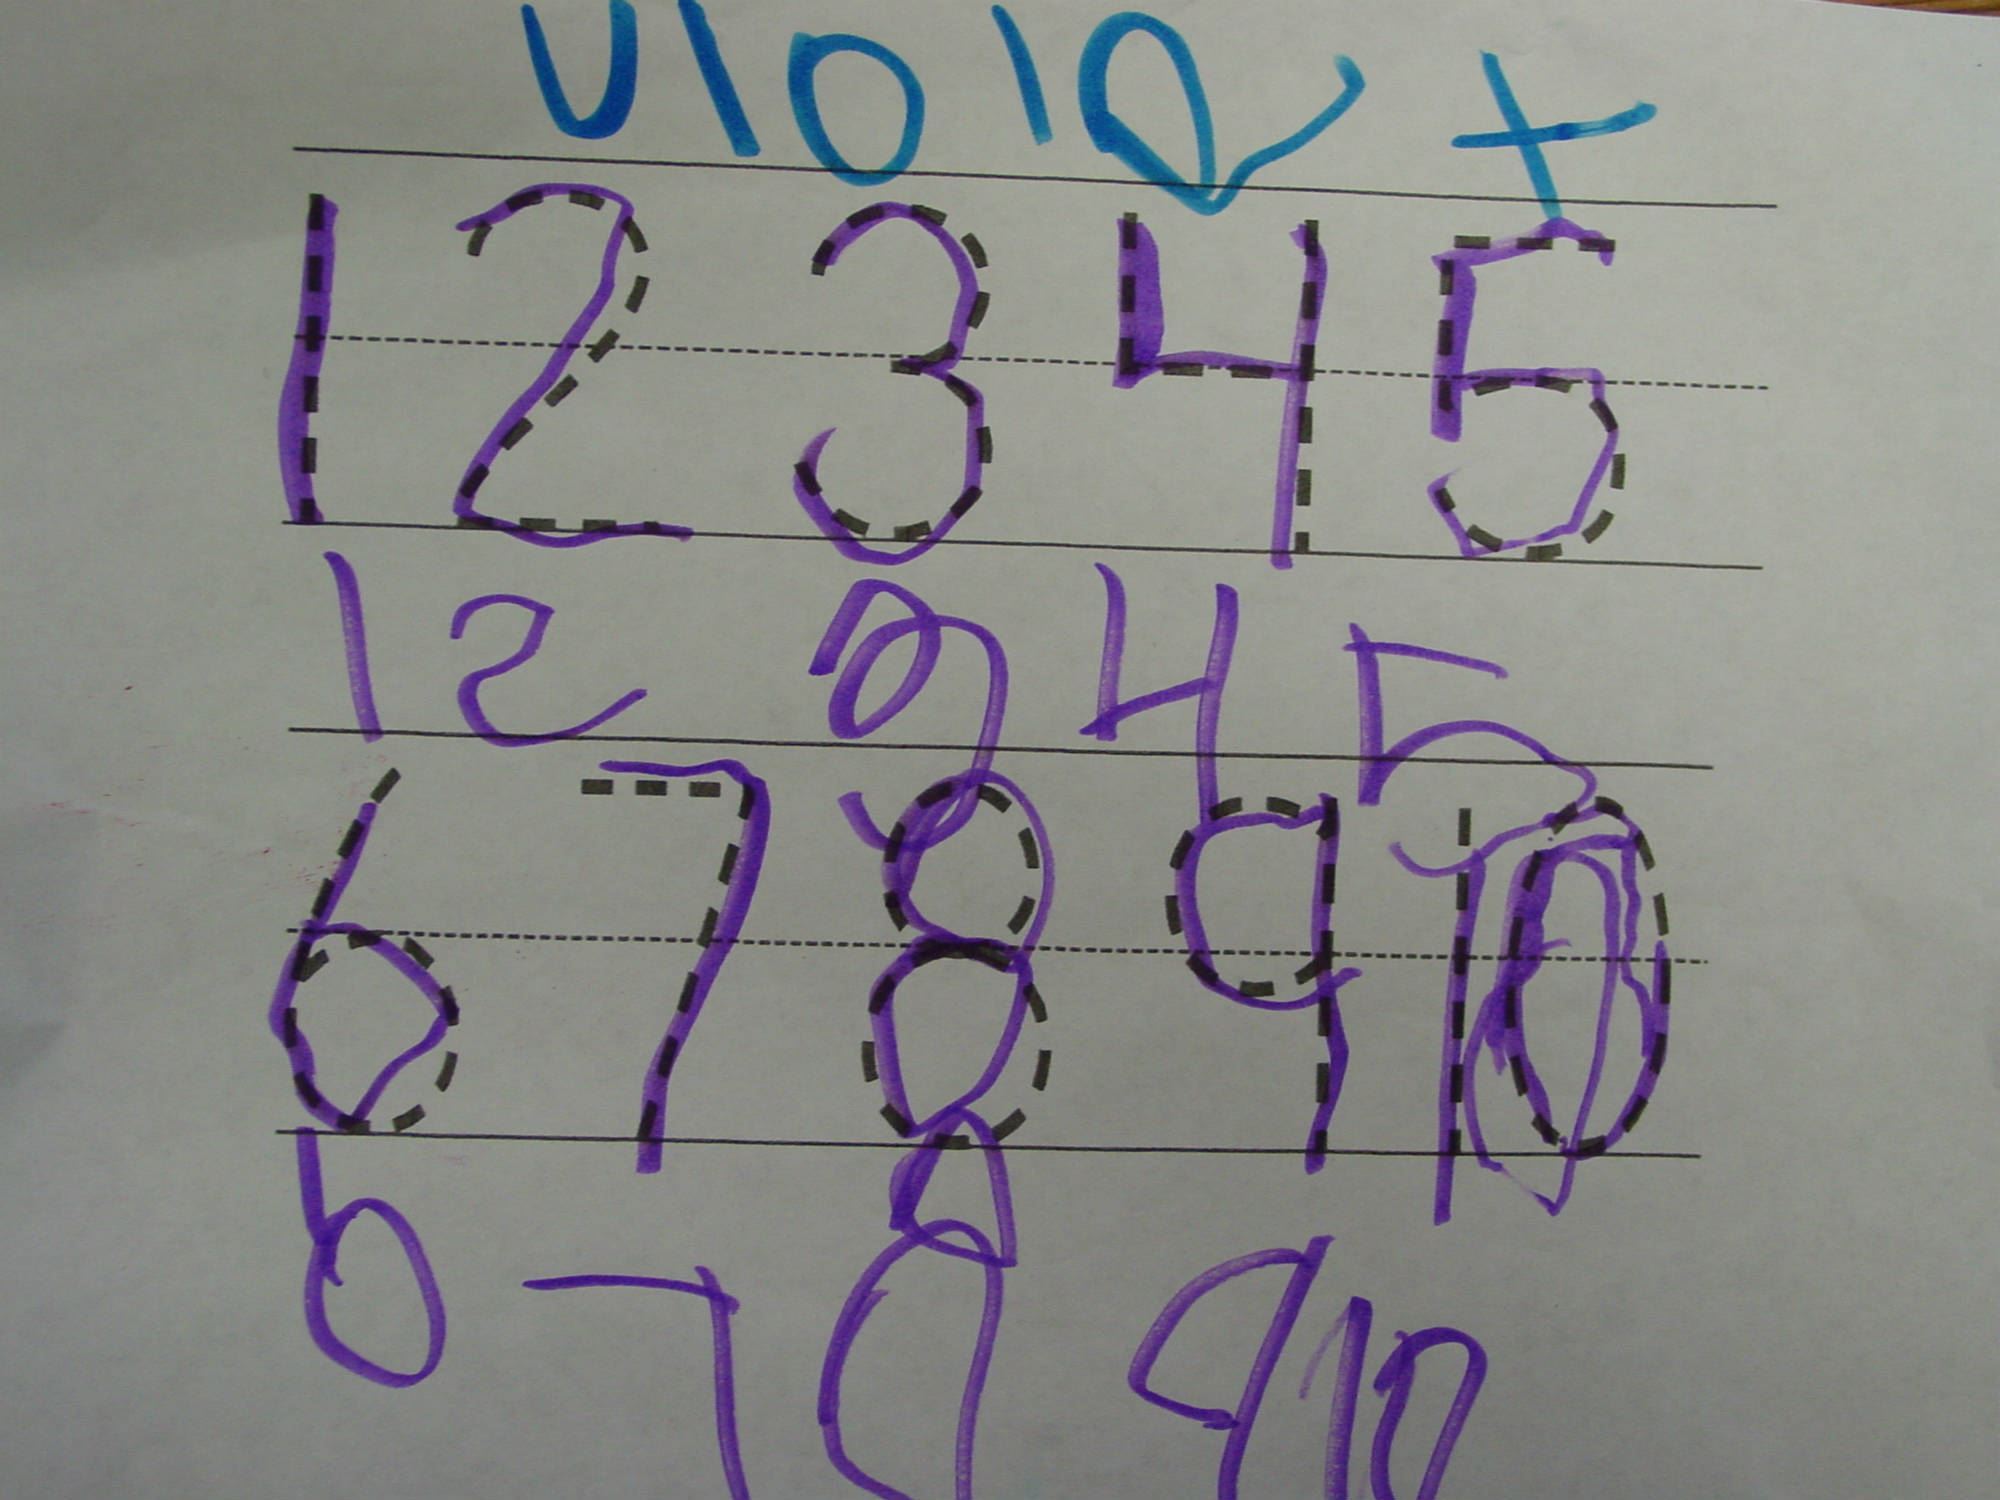 Violet
1 2 3 4 5
1 2 3 4 5
6 7 8 9 10
6 7 8 9 10